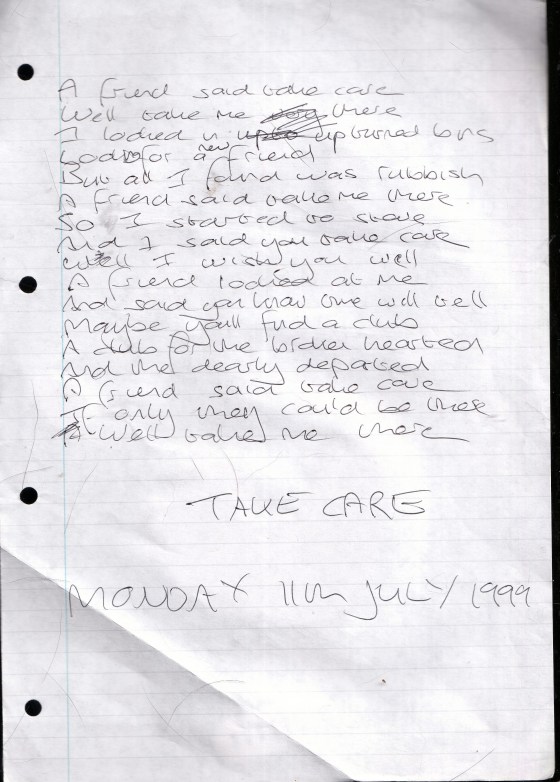 A friend said take care
Well take me there
I looked in upturned bins
Look for a new friend
But all I found was rubbish
A friend said take me there
So I started to stare
And I said you take care
Well I wish you well
A friend looked at me
And said you know time will tell
Maybe you'll find a club
A club for the broken hearted
And the dearly departed
A friend said take care
If only they could be there
Well take me there
TAKE CARE
MONDAY 11th JULY 1999